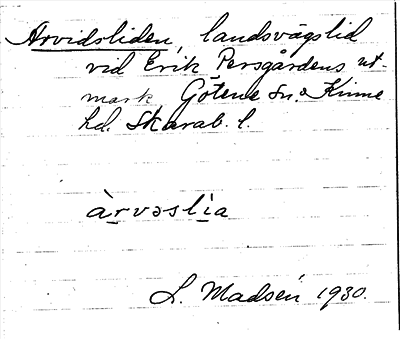 Arvidsliden, landsvägslid
vid Erik Persgårdens ut-
mark, Götene sn. Kinne
hd. Skarab. l.
àrvəslìa
L. Madsén 1930.